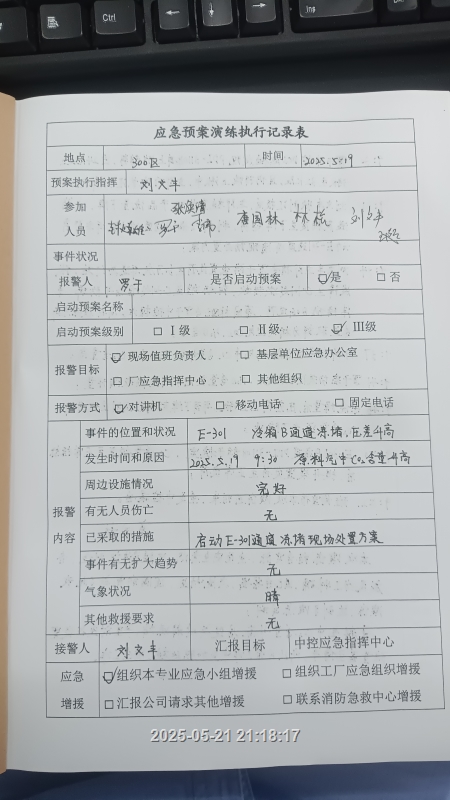 Ctrl
应急预案演练执行记录表
地点 300区 时间 2025.5.19
预案执行指挥 刘文丰
参加人员 唐国林 林棕
事件状况
报警人 罗干 是否启动预案 ☑是 □否
启动预案名称
启动预案级别 □Ⅰ级 □Ⅱ级 ☑Ⅲ级
报警目标 ☑现场值班负责人 □基层单位应急办公室
□厂应急指挥中心 □其他组织
报警方式 ☑对讲机 □移动电话 □固定电话
报警内容
事件的位置和状况 E-301 冷箱B通道冻堵,压差升高
发生时间和原因 2025.5.19 9:30 原料气中CO₂含量升高
周边设施情况 完好
有无人员伤亡 无
已采取的措施 启动E-301通道冻堵现场处置方案
事件有无扩大趋势 无
气象状况 晴
其他救援要求 无
接警人 刘文丰 汇报目标 中控应急指挥中心
应急增援 ☑组织本专业应急小组增援 □组织工厂应急组织增援
□汇报公司请求其他增援 □联系消防急救中心增援
2025-05-21 21:18:17